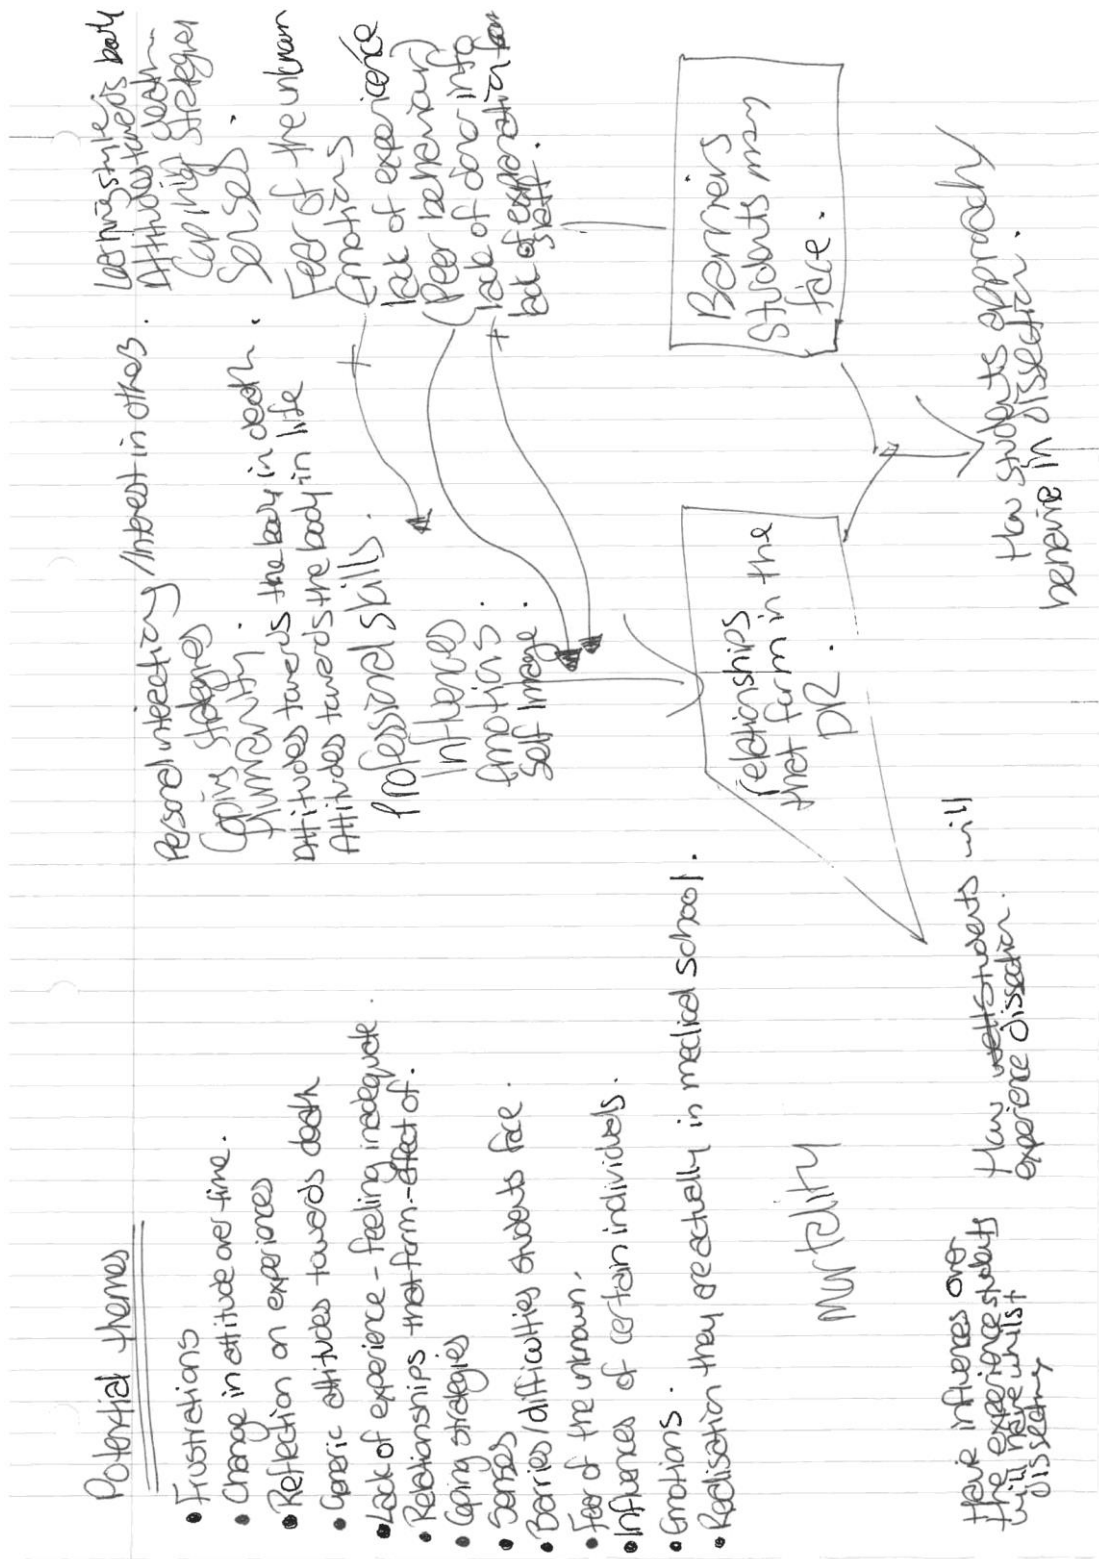 Potential themes
• Frustrations
• Change in attitude over time.
• Reflection on experiences
• Generic attitudes towards death
• Lack of experience - feeling inadequate.
• Relationships that form - effect of.
• Coping strategies
• Senses
• Barries/difficulties students face.
• Fear of the unknown.
• Influences of certain individuals.
• Emotions.
• Realisation they are actually in medical school.
Mortality
Have influences over
the experience students
will have whilst
dissecting
How students will
experience dissection.
Personal interaction / Interest in others.
Coping strategies
Humanity.
Attitudes towards the body in death.
Attitudes towards the body in life
Professional skills.
Influences
Emotions.
Self image.
relationships
that form in the
DR.
Learning style
Attitudes towards body
death
Coping strategies
Senses.
Fear of the unknown
Emotions
lack of experience
(Peer behaviour)
lack of donor info
lack of explanation from
staff.
Barriers
students may
face.
How students approach/
behave in dissection.